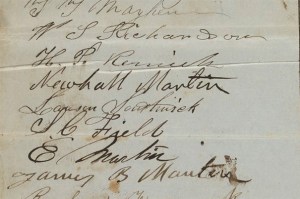 W S Richardson
H. P. Renick
Newhall Martin
Lawson Southwick
J. C Field
E Martin
James B Mantin